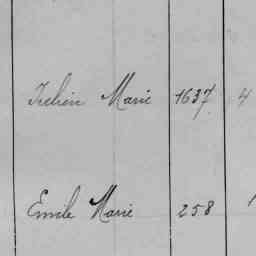 Julien Marie 1637 4
Emile Marie 258 1